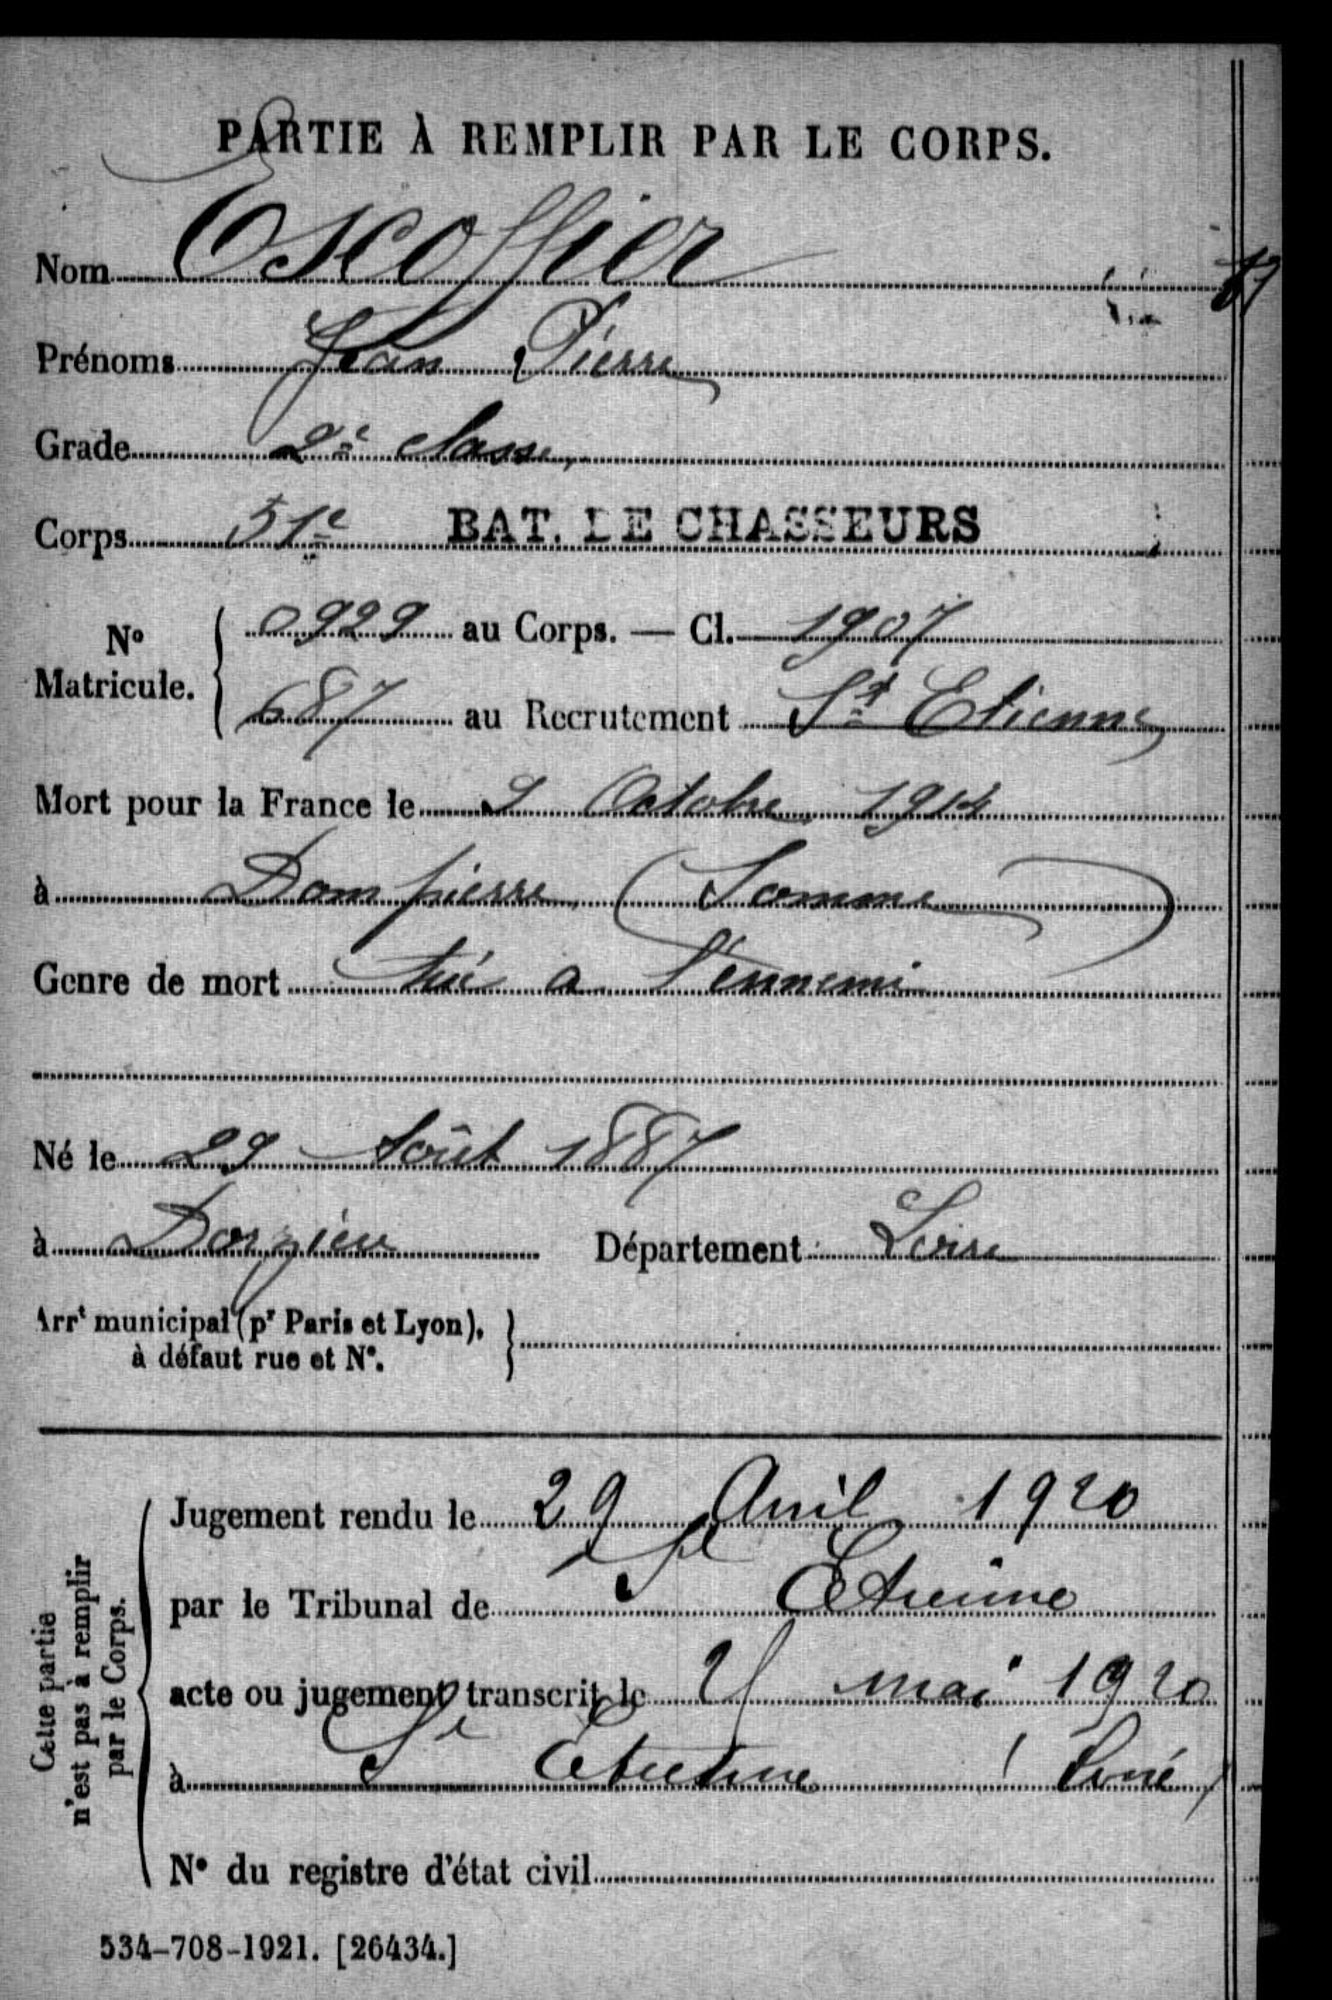 PARTIE À REMPLIR PAR LE CORPS.
Nom Escoffier
Prénoms Jean Pierre
Grade 2e classe
Corps 51e BAT. DE CHASSEURS
No Matricule.
0929 au Corps. — Cl. 1907
687 au Recrutement St Etienne
Mort pour la France le 9 Octobre 1914
à Dompierre (Somme)
Genre de mort tué a l'ennemi
Né le 29 Août 1887
à Dargieu Département Loire
Arrt municipal (pr Paris et Lyon),
à défaut rue et No.
Cette partie
n'est pas à remplir
par le Corps.
Jugement rendu le 29 Avril 1920
par le Tribunal de St Etienne
acte ou jugement transcrit le mai 1920
à St Etienne (Loire)
No du registre d'état civil
534-708-1921. [26434.]